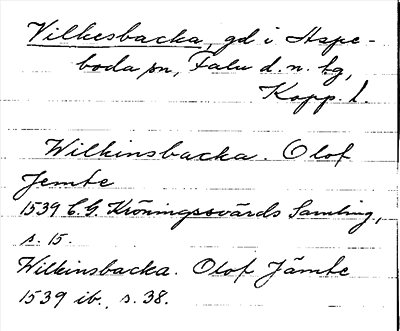 Vilkesbacka, gd i Aspe-
boda sn, Falu d. n. bg,
Kopp. l.
Wilkinsbacka. Olof
Jemte
1539 C.G. Kröningssvärds Samling,
s. 15.
Wilkinsbacka. Olof Jämte
1539 ib. s. 38.